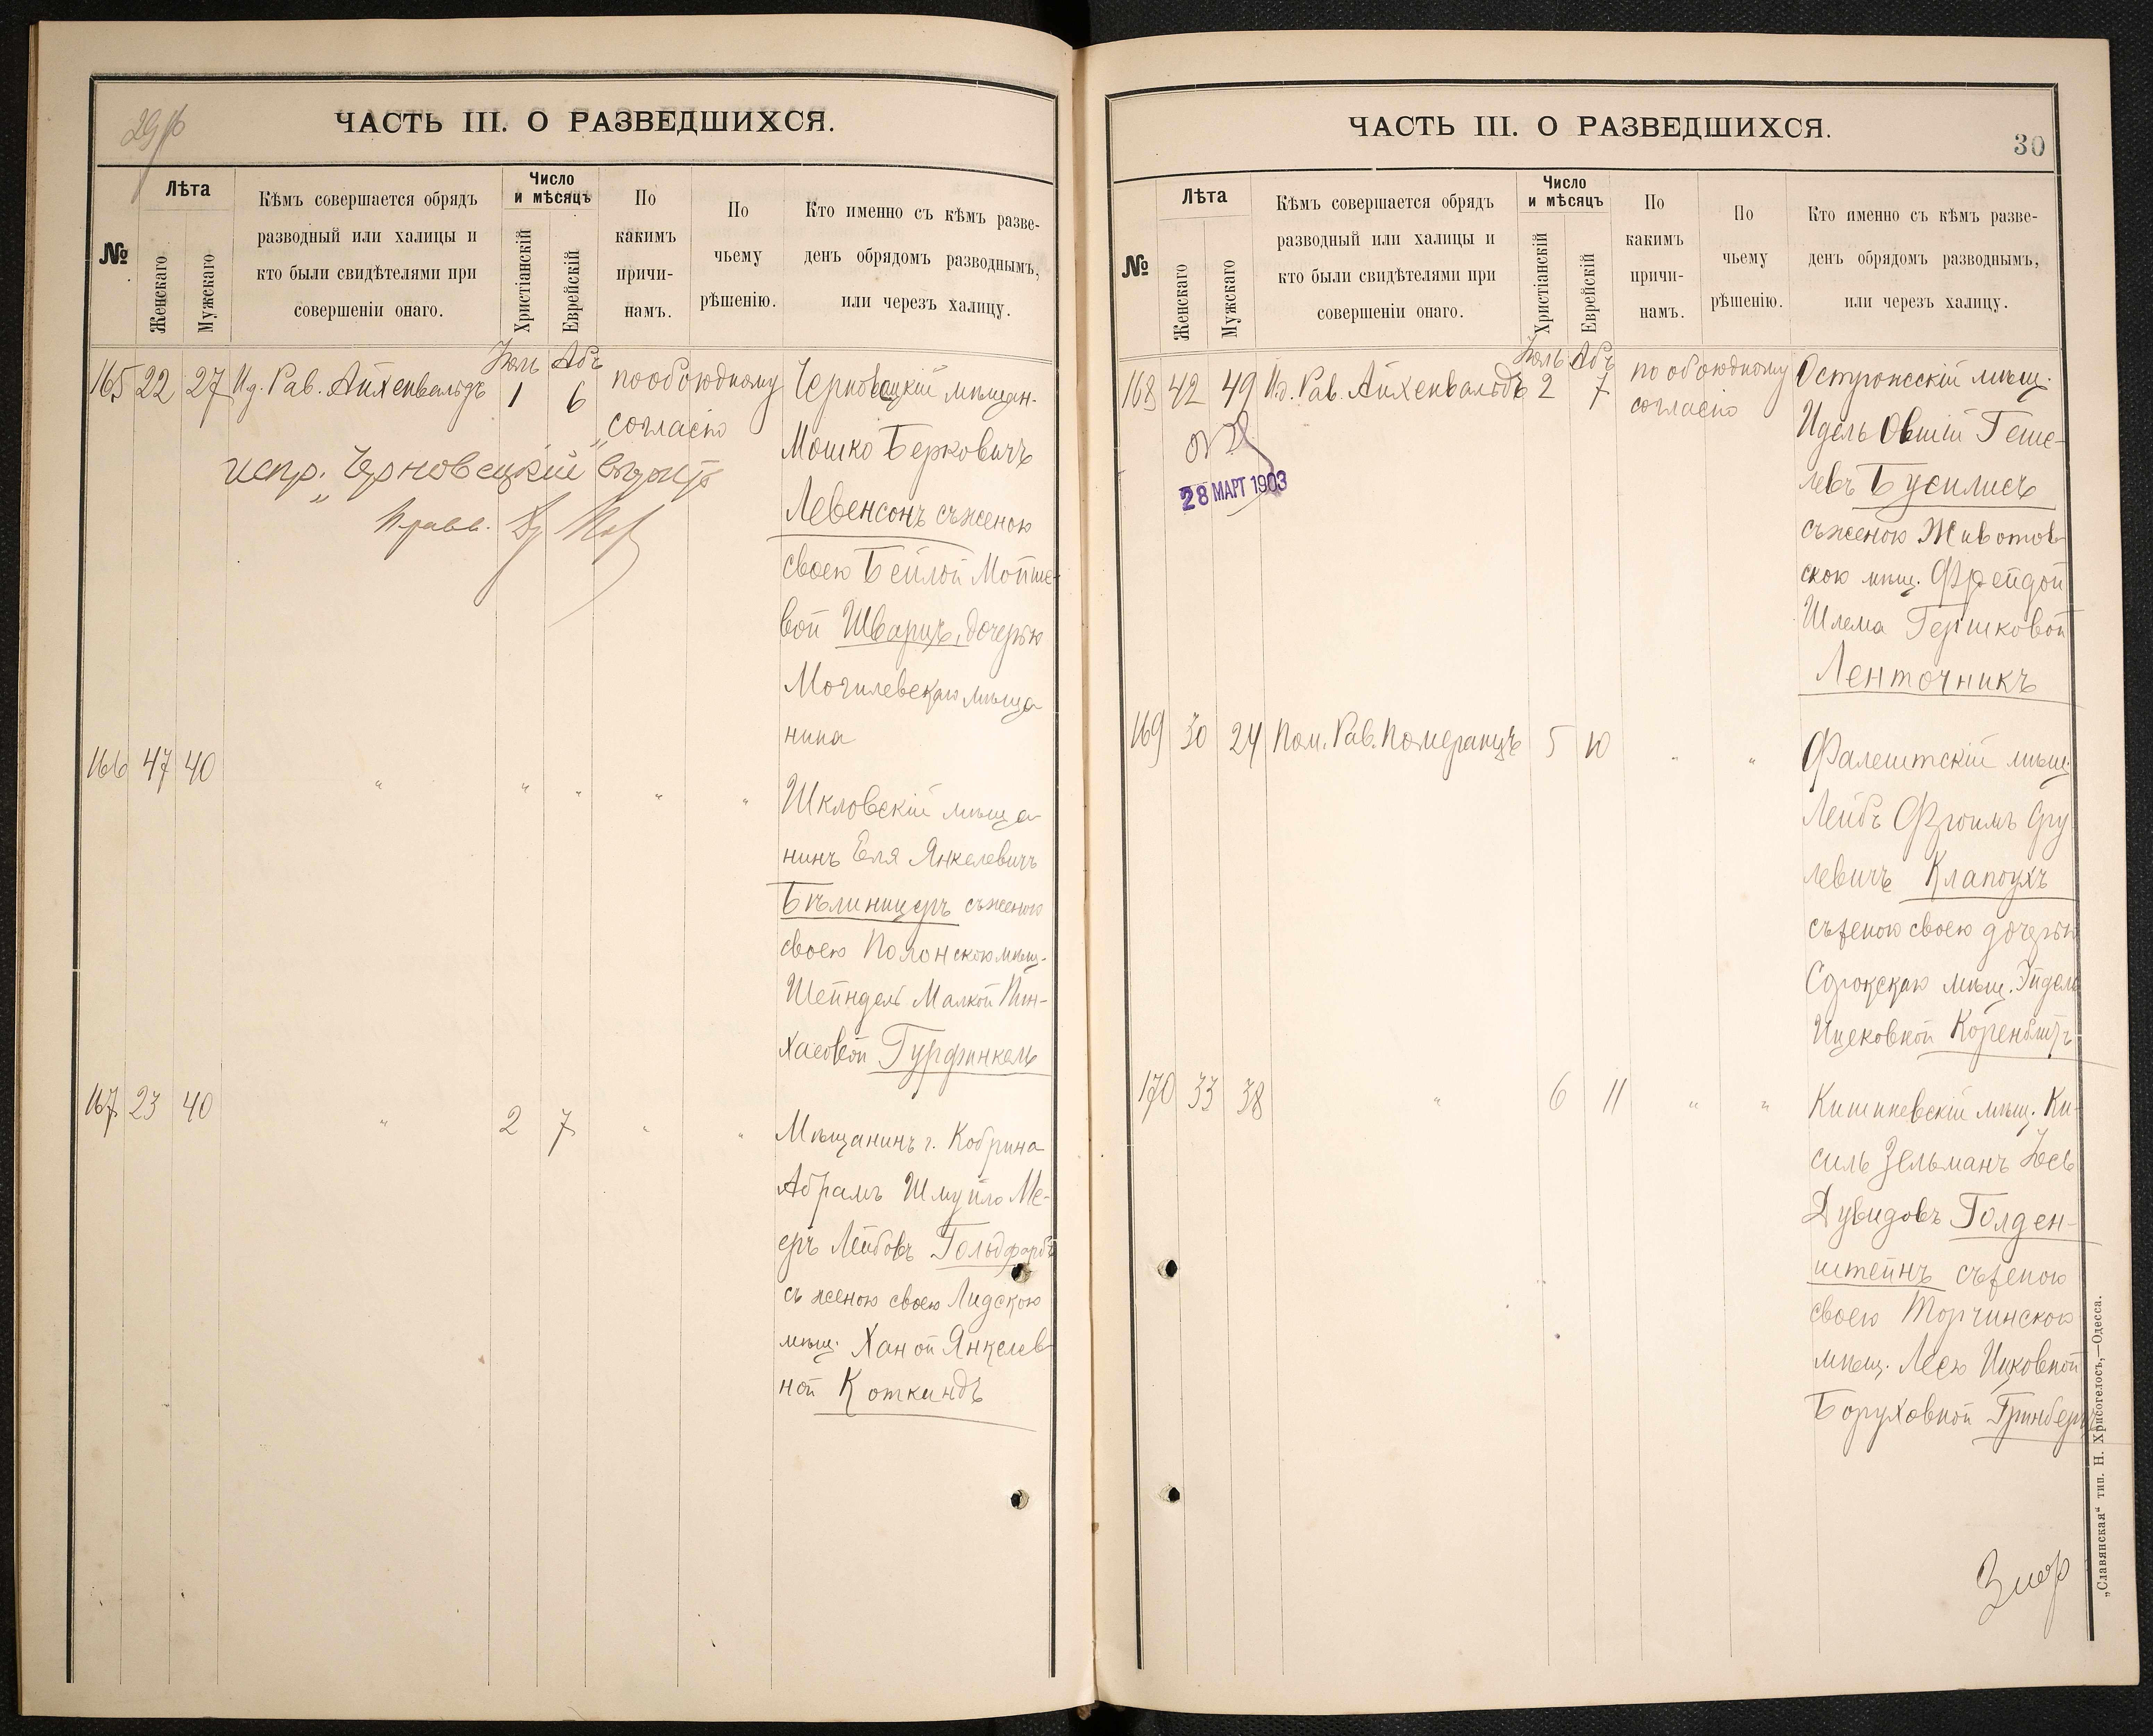 ЧАСТЬ III. О РАЗВЕДШИХСЯ.
№
Лѣта
Женскаго
Мужскаго
Кѣмъ совершается обрядъ
разводный или халицы и
кто были свидѣтелями при
совершеніи онаго.
Число
и мѣсяцъ
Христіанскій
Еврейскій
По
какимъ
причи-
намъ.
По
чьему
рѣшенію.
Кто именно съ кѣмъ разве-
денъ обрядомъ разводнымъ,
или черезъ халицу.
Іюль Абъ
165 22 27 Ид. Рав. Айхенвальдъ 1 6 по обоюдному
согласію
Черновецкій мѣщан.
Мошко Берковичъ
Левенсонъ съ женою
своею Бейлой Мойше-
вой Шварцъ, дочерью
Могилевскаго мѣща
нина
испр. "Черновецкій" вѣрить
166 47 40 " " " " "
Шкловскій мѣща
нинъ Еля Янкелевичъ
Бѣлиницеръ съ женою
своею Полонскою мѣщ.
Шейндель Малкой Пин-
хасовой Гурфинкель
167 23 40 " 2 7 " "
Мѣщанинъ г. Кобрина
Абрамъ Шмуйло Ме-
еръ Лейбовъ Гольдфарбъ
съ женою своею Лидскою
мѣщ. Ханой Янкелев
ной Коткиндъ
ЧАСТЬ III. О РАЗВЕДШИХСЯ.
30
№
Лѣта
Женскаго
Мужскаго
Кѣмъ совершается обрядъ
разводный или халицы и
кто были свидѣтелями при
совершеніи онаго.
Число
и мѣсяцъ
Христіанскій
Еврейскій
По
какимъ
причи-
намъ.
По
чьему
рѣшенію.
Кто именно съ кѣмъ разве-
денъ обрядомъ разводнымъ,
или черезъ халицу.
Іюль Абъ
168 42 49 Ид. Рав. Айхенвальдъ 2 7 по обоюдному
согласію
28 МАРТ 1903
Острожскій мѣщ.
Идель Овшій Геше-
левъ Бусилисъ
съ женою Животов
скою мѣщ. Фрейдой
Шлема Гершковой
Ленточникъ
169 30 24 Пом. Рав. Померанцъ 5 10 " "
Фалештскій мѣщ.
Лейбъ Фроимъ Сру
левичъ Клапоухъ
съ женою своею дочерью
Сорокскаго мѣщ. Эйдель
Ицековной Коренблитъ
170 33 38 " 6 11 " "
Кишиневскій мѣщ. Ки-
силь Зельманъ Іось
Дувидовъ Голден-
штейнъ съ женою
своею Торчинскою
мѣщ. Лею Ицковной
Боруховной Гринбергъ
„Славянская“ тип. Н. Хрисогелосъ,—Одесса.